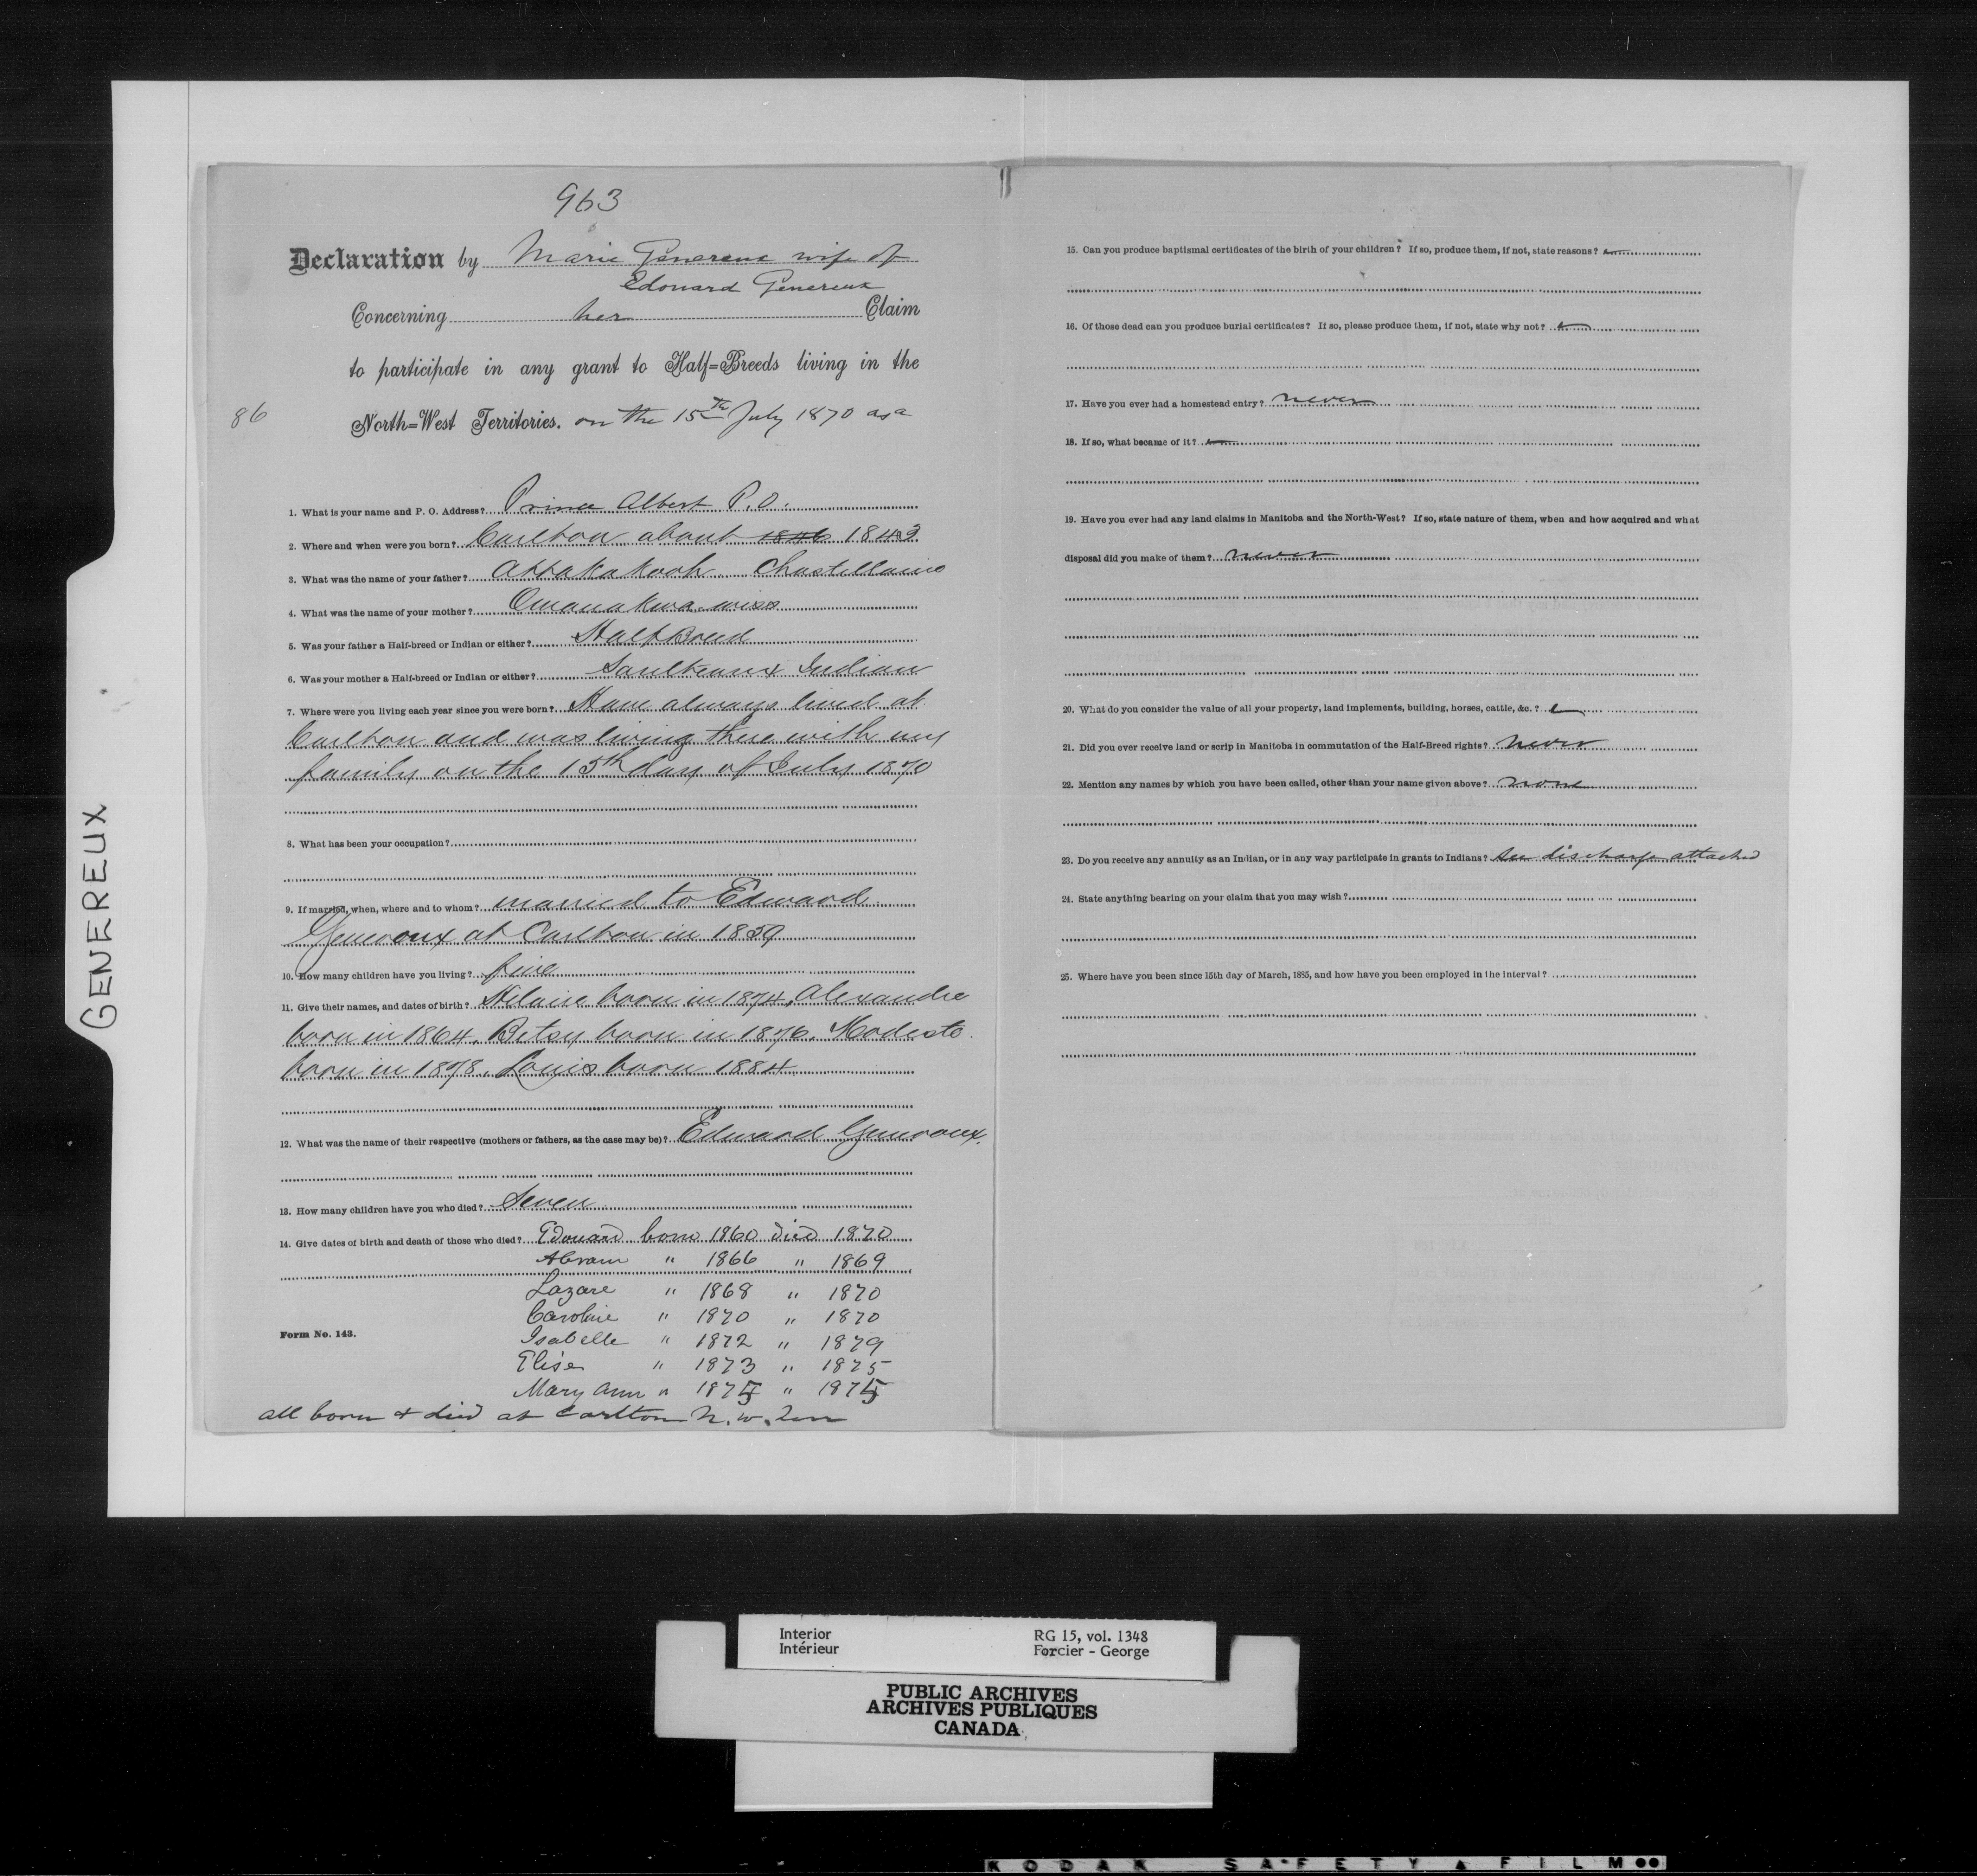 GENEREUX
963
Declaration by Marie Genereux wife of
Edouard Genereux
Concerning her Claim
to participate in any grant to Half=Breeds living in the
86
North=West Territories. on the 15th July 1870 as a
1. What is your name and P. O. Address? Prince Albert P.O.
2. Where and when were you born? Carlton about 1846 1843
3. What was the name of your father? Attakakooh Chastellaine
4. What was the name of your mother?
5. Was your father a Half-breed or Indian or either? Half Breed
6. Was your mother a Half-breed or Indian or either? Saulteaux Indian
7. Where were you living each year since you were born? Have always lived at
Carlton and was living there with my
family on the 15th day of July 1870
8. What has been your occupation?
9. If married, when, where and to whom? married to Edward
Generoux at Carlton in 1859
10. How many children have you living? five
11. Give their names, and dates of birth? Hilaire born in 1874, Alexandre
born in 1864, Betsy born in 1876. Modeste
born in 1878, Louis born 1884
12. What was the name of their respective (mothers or fathers, as the case may be)? Edward Generoux.
13. How many children have you who died? Seven
14. Give dates of birth and death of those who died? Edouard born 1860 died 1870
Abram " 1866 " 1869
Lazare " 1868 " 1870
Caroline " 1870 " 1870
Form No. 143.
Isabelle " 1872 " 1879
Elise " 1873 " 1875
Mary Ann " 1875 " 1875
all born & died at Carlton N.W. Terr
15. Can you produce baptismal certificates of the birth of your children? If so, produce them, if not, state reasons?
16. Of those dead can you produce burial certificates? If so, please produce them, if not, state why not?
17. Have you ever had a homestead entry? never
18. If so, what became of it?
19. Have you ever had any land claims in Manitoba and the North-West? If so, state nature of them, when and how acquired and what
disposal did you make of them? never
20. What do you consider the value of all your property, land implements, building, horses, cattle, &c.?
21. Did you ever receive land or scrip in Manitoba in commutation of the Half-Breed rights? never
22. Mention any names by which you have been called, other than your name given above? none
23. Do you receive any annuity as an Indian, or in any way participate in grants to Indians? See discharge attached
24. State anything bearing on your claim that you may wish?
25. Where have you been since 15th day of March, 1885, and how have you been employed in the interval?
Interior RG 15, vol. 1348
Intérieur Forcier - George
PUBLIC ARCHIVES
ARCHIVES PUBLIQUES
CANADA
KODAK SAFETY FILM